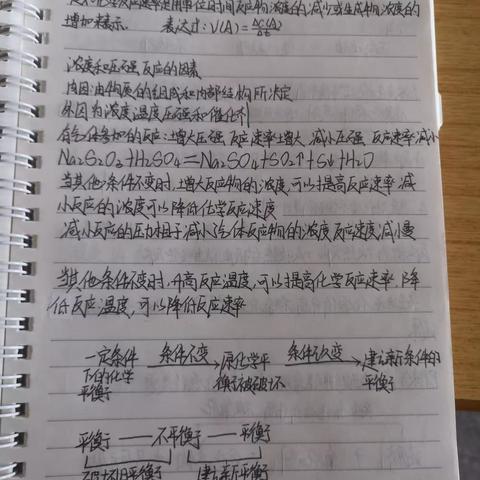 化学反应速率是用单位时间反应物浓度的减少或生成物浓度的
增加来表示. 表达式: V(A)=ΔC(A)/Δt
浓度和压强反应的因素
内因:由物质的组成和内部结构所决定
外因为浓度温度压强和催化剂
有气体参加的反应:增大压强 反应速率增大 减小压强 反应速率减小
Na₂S₂O₃+H₂SO₄=Na₂SO₄+SO₂↑+S↓+H₂O
当其他条件不变时,增大反应物的浓度,可以提高反应速率 减
小反应的浓度可以降低化学反应速度
减小反应的压力相于减小气体反应物的浓度 反应速度减小慢
当其他条件不变时,升高反应温度,可以提高化学反应速率 降
低反应温度,可以降低反应速率
一定条件下的化学平衡 条件不变 原化学平衡被破坏 条件改变 建立新条件的平衡
平衡——不平衡——平衡
破坏旧平衡 建立新平衡